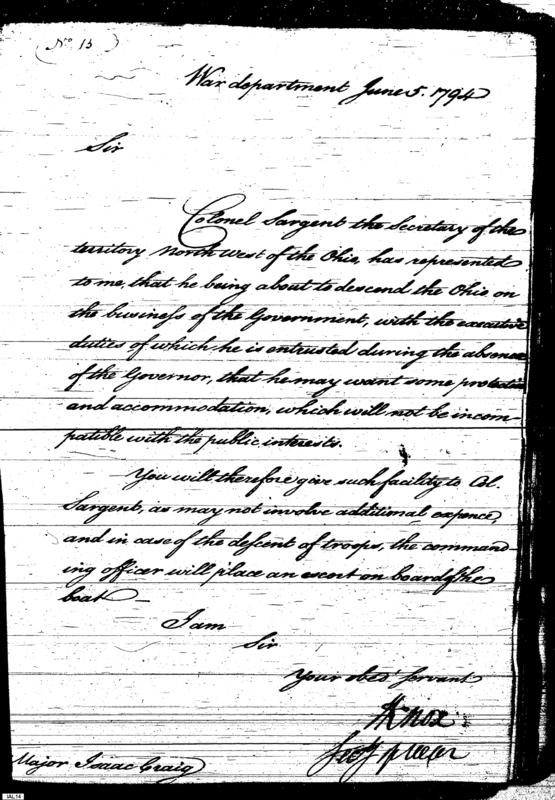 (No 15)
War department June 5. 1794
Sir
Colonel Sargent the Secretary of the
territory North West of the Ohio, has represented
to me, that he being about to descend the Ohio on
the business of the Government, with the executive
duties of which he is entrusted during the absence
of the Governor, that he may want some protection
and accommodation, which will not be incom-
patible with the public interests.
You will therefore give such facility to Col.
Sargent, as may not involve additional expence,
and in case of the descent of troops, the command-
ing officer will place an escort on board of the
boat —
I am
Sir
Your obed' servant
HKnox
Secy of war
Major Isaac Craig
IAL14